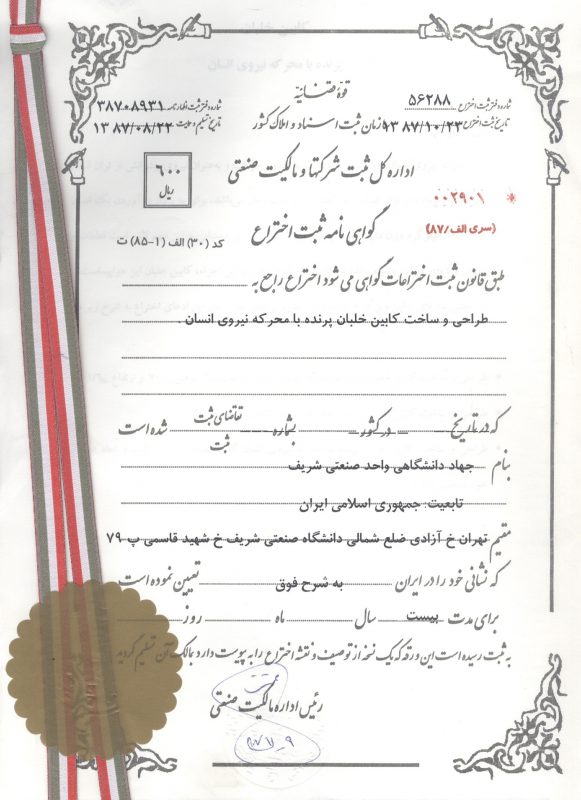 قوه قضائیه
شماره دفتر ثبت اختراع ۵۶۲۸۸
شماره دفتر ثبت اظهارنامه ۳۸۷۰۸۹۳۱
تاریخ ثبت اختراع ۱۳۸۷/۱۰/۲۳
سازمان ثبت اسناد و املاک کشور
تاریخ تسلیم ۱۳۸۷/۰۸/۲۲
اداره کل ثبت شرکتها و مالکیت صنعتی
۶۰۰
ریال
۰۰۲۹۰۱ *
(سری الف/۸۷)
گواهی نامه ثبت اختراع
کد (۳۰) الف (۱-۸۵) ت
طبق قانون ثبت اختراعات گواهی می شود اختراع راجع به
طراحی و ساخت کابین خلبان پرنده با محرکه نیروی انسان .
که در تاریخ در کشور بشماره تقاضای ثبت شده است
ثبت
بنام جهاد دانشگاهی واحد صنعتی شریف
تابعیت: جمهوری اسلامی ایران
مقیم تهران خ آزادی ضلع شمالی دانشگاه صنعتی شریف خ شهید قاسمی پ ۷۹
که نشانی خود را در ایران به شرح فوق تعیین نموده است
برای مدت بیست سال ماه روز
به ثبت رسیده است این ورقه که یک نسخه از توصیف و نقشه اختراع را به پیوست دارد بمالک آن تسلیم گردید
رئیس اداره مالکیت صنعتی